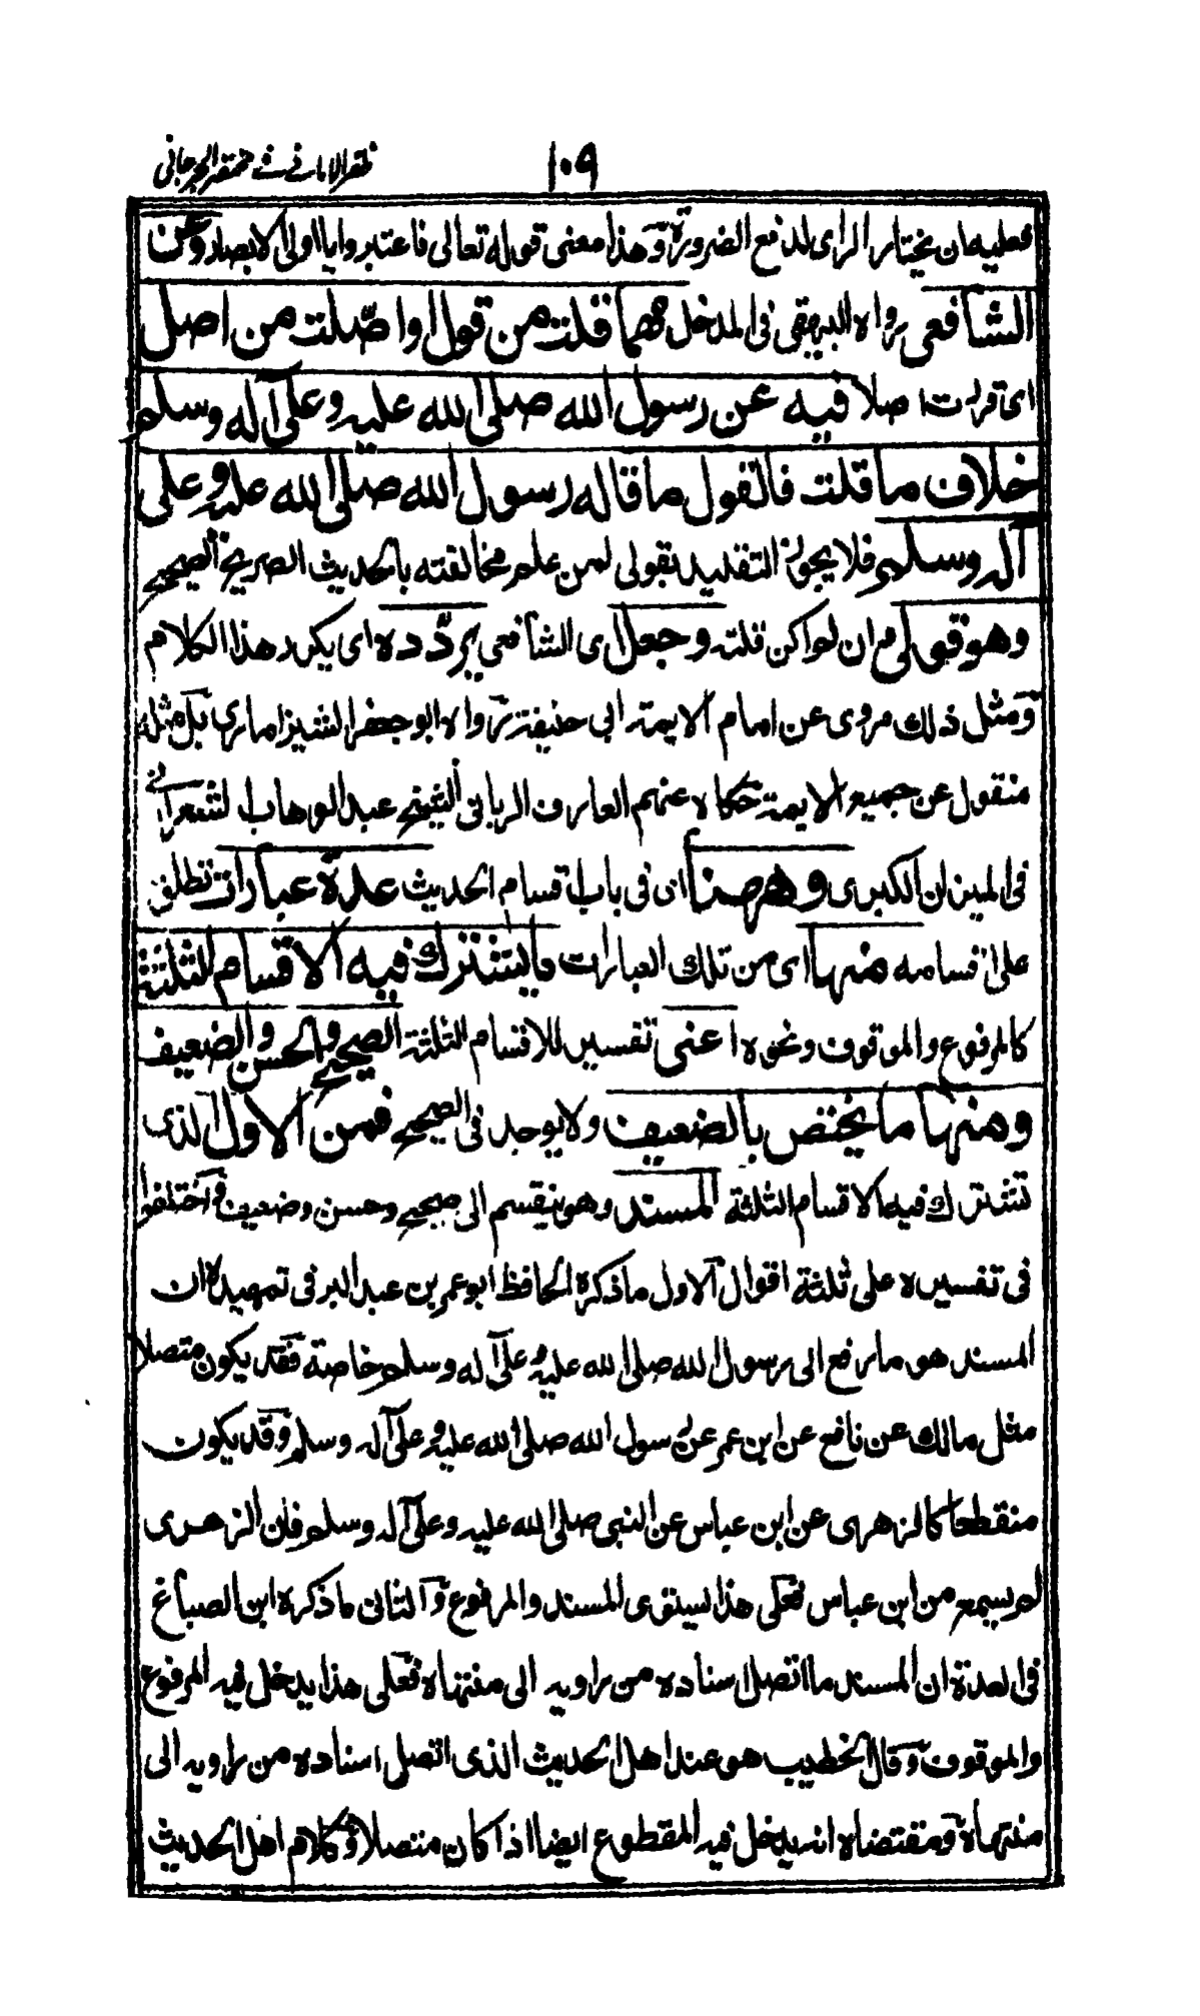 ظفر الامانی فی شرح مختصر الجرجانی
١٠٩
فعليه ان يختار الراى لدفع الضرورة وهذا معنى قوله تعالى فاعتبروا يا اولى الابصار وعن
الشافعى رواه البيهقى فى المدخل مهما قلت من قول او اصّلت من اصل
اى قررت اصلا فيه عن رسول الله صلى الله عليه وعلى آله وسلم
خلاف ما قلت فالقول ما قاله رسول الله صلى الله عليه وعلى
آله وسلم فلا يجوز التقليد بقولى لمن علم مخالفته بالحديث الصريح الصحيح
وهو قولى وان لم اكن قلته وجعل اى الشافعى يردّده اى يكرر هذا الكلام
ومثل ذلك مروى عن امام الايمة ابى حنيفة رواه ابو جعفر الشيزامارى بل مثله
منقول عن جميع الايمة حكاه عنهم العارف الربانى الشيخ عبد الوهاب الشعرانى
فى الميزان الكبرى وههنا اى فى باب اقسام الحديث عدة عبارات تطلق
على اقسامه منها اى من تلك العبارات ما يشترك فيه الاقسام الثلثة
كالمرفوع والموقوف ونحوه اعنى تفسير للاقسام الثلثة الصحيح والحسن والضعيف
ومنها ما يختص بالضعيف ولا يوجد فى الصحيح فمن الاول الذى
تشترك فيه الاقسام الثلثة المسند وهو ينقسم الى صحيح وحسن وضعيف واختلفوا
فى تفسيره على ثلثة اقوال الاول ما ذكره الحافظ ابو عمر بن عبد البر فى تمهيده ان
المسند هو ما رفع الى رسول الله صلى الله عليه وعلى آله وسلم خاصة فقد يكون متصلا
مثل مالك عن نافع عن ابن عمر عن رسول الله صلى الله عليه وعلى آله وسلم وقد يكون
منقطعا كالزهرى عن ابن عباس عن النبى صلى الله عليه وعلى آله وسلم فان الزهرى
لم يسمع من ابن عباس فعلى هذا يستوى المسند والمرفوع والثانى ما ذكره ابن الصباغ
فى العدة ان المسند ما اتصل اسناده من راويه الى منتهاه فعلى هذا يدخل فيه المرفوع
والموقوف وقال الخطيب هو عند اهل الحديث الذى اتصل اسناده من راويه الى
منتهاه ومقتضاه انه يدخل فيه المقطوع ايضا اذا كان متصلا وكلام اهل الحديث